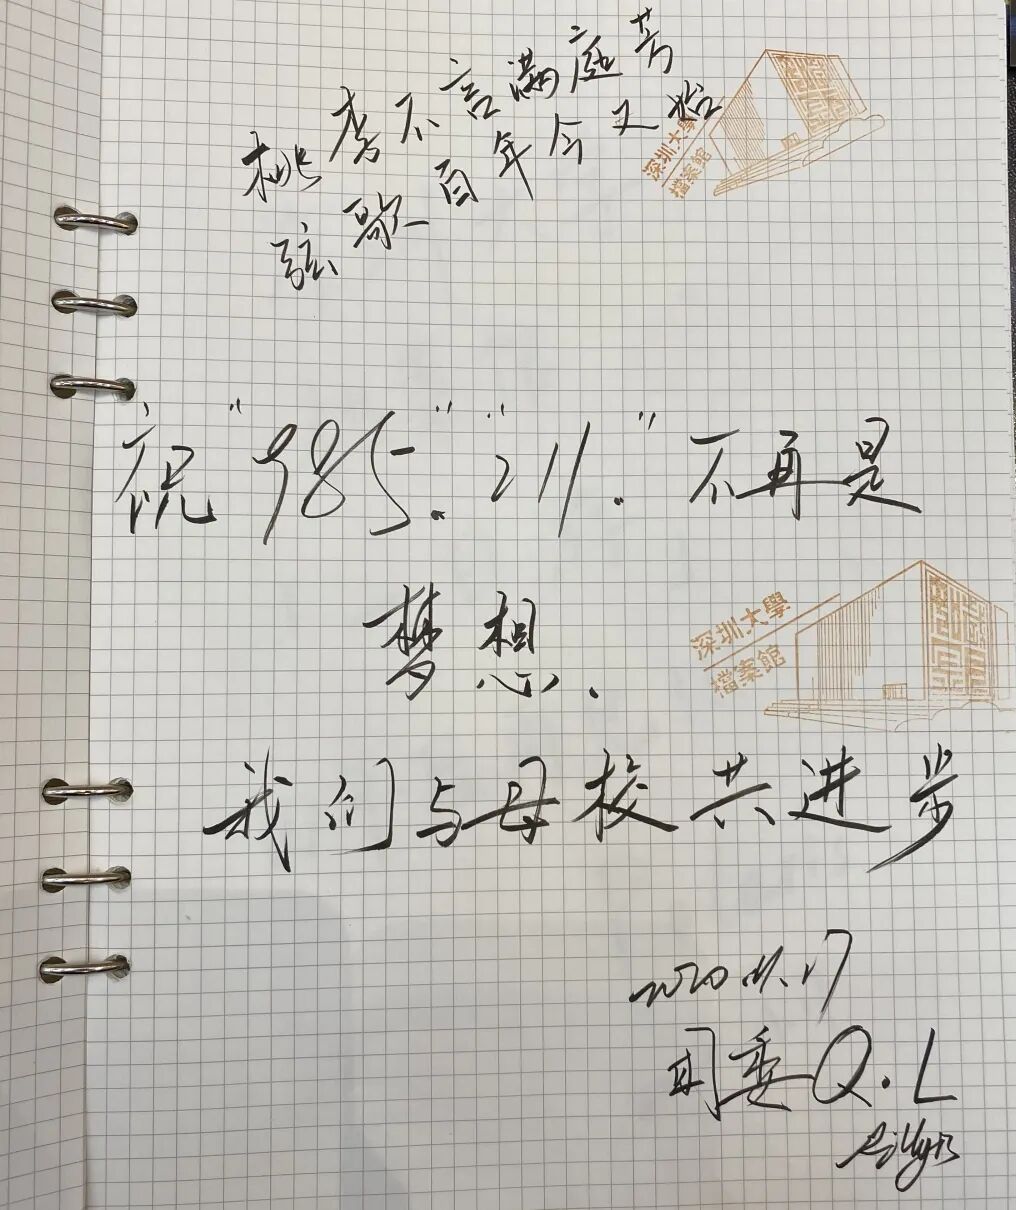 桃李不言满庭芳
弦歌百年今又始
深圳大學
檔案館
祝"985.""211."不再是
梦想.
深圳大學
檔案館
我们与母校共进步
2020.11.17
Q.L